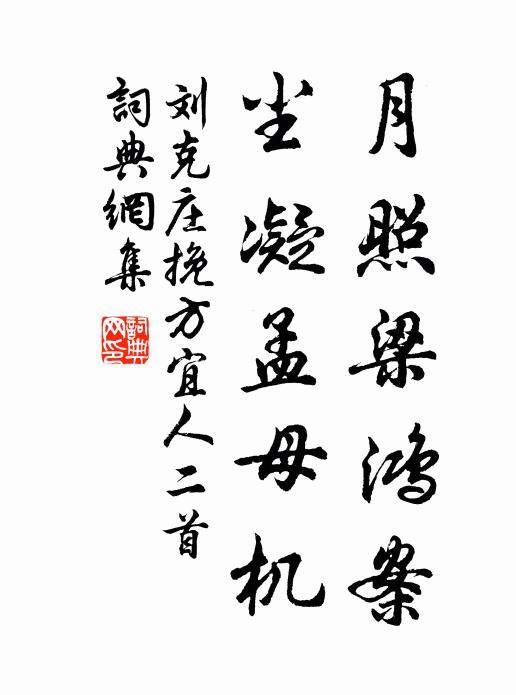 月照梁鸿案
尘凝孟母机
刘克庄挽方宜人二首
詞典網集
詞典网印